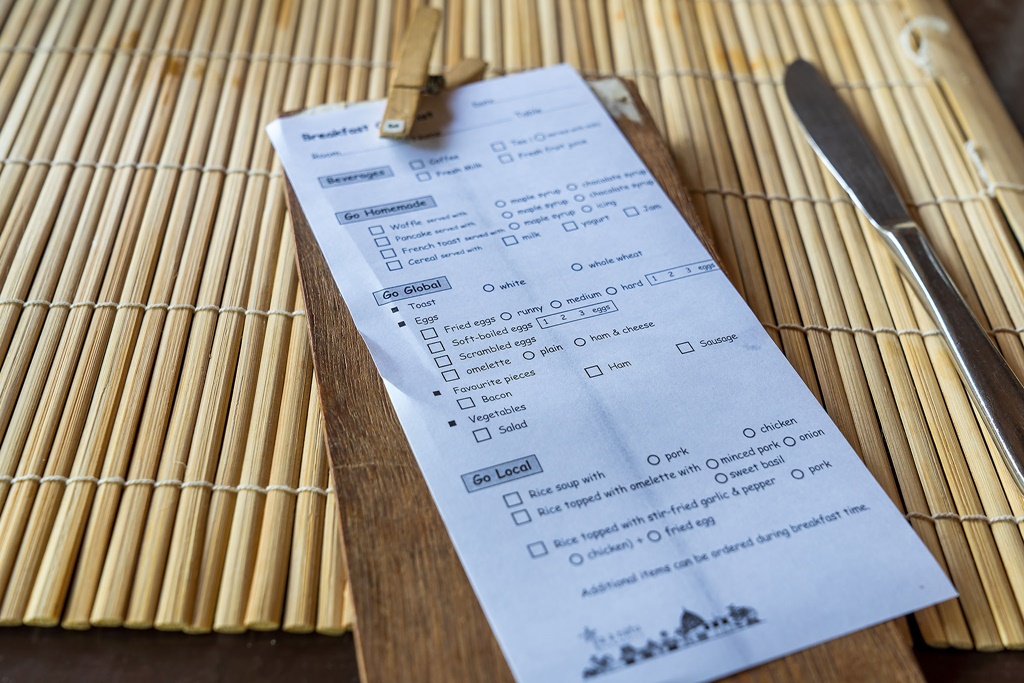 Breakfast
Date
Room Table
Beverages Coffee Tea
Fresh Milk Fresh fruit juice
Go Homemade
Waffle served with maple syrup chocolate syrup
Pancake served with maple syrup chocolate syrup
French toast served with maple syrup icing
Cereal served with milk yogurt Jam
Go Global
Toast white whole wheat
Eggs
Fried eggs runny medium hard 1 2 3 eggs
Soft-boiled eggs 1 2 3 eggs
Scrambled eggs
omelette plain ham & cheese
Favourite pieces
Bacon Ham Sausage
Vegetables
Salad
Go Local
Rice soup with pork chicken
Rice topped with omelette with minced pork onion
sweet basil
Rice topped with stir-fried garlic & pepper pork
chicken) + fried egg
Additional items can be ordered during breakfast time.